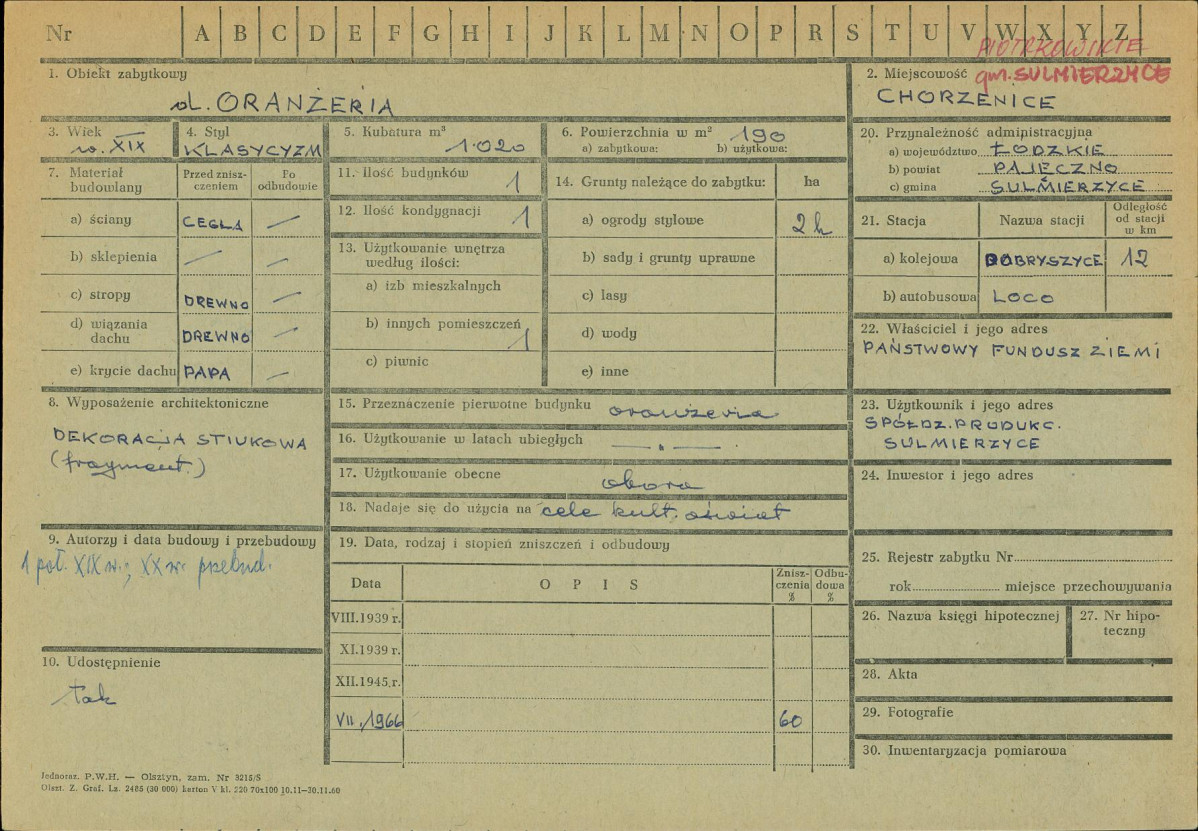 Nr A B C D E F G H I J K L M N O P R S T U V W X Y Z
PIOTRKOWSKIE
gm. SULMIERZYCE
1. Obiekt zabytkowy
ORANŻERIA
2. Miejscowość
CHORZENICE
3. Wiek
w. XIX
4. Styl
KLASYCYZM
5. Kubatura m³
1.020
6. Powierzchnia w m² 190
a) zabytkowa: b) użytkowa:
7. Materiał budowlany
Przed zniszczeniem
Po odbudowie
a) ściany CEGŁA —
b) sklepienia — —
c) stropy DREWNO —
d) wiązania dachu DREWNO —
e) krycie dachu PAPA —
8. Wyposażenie architektoniczne
DEKORACJA STIUKOWA
(fragment.)
9. Autorzy i data budowy i przebudowy
1 poł. XIX w.; XX w. przebud.
10. Udostępnienie
tak
11. Ilość budynków 1
12. Ilość kondygnacji 1
13. Użytkowanie wnętrza
według ilości:
a) izb mieszkalnych
b) innych pomieszczeń 1
c) piwnic
14. Grunty należące do zabytku: ha
a) ogrody stylowe 2 h
b) sady i grunty uprawne
c) lasy
d) wody
e) inne
15. Przeznaczenie pierwotne budynku oranżeria
16. Użytkowanie w latach ubiegłych — „ —
17. Użytkowanie obecne obora
18. Nadaje się do użycia na cele kult. oświat
19. Data, rodzaj i stopień zniszczeń i odbudowy
Data OPIS Zniszczenia % Odbudowa %
VIII.1939 r.
XI.1939 r.
XII.1945.r.
VII.1966 60
20. Przynależność administracyjna
a) województwo ŁÓDZKIE
b) powiat PAJĘCZNO
c) gmina SULMIERZYCE
21. Stacja Nazwa stacji Odległość od stacji w km
a) kolejowa DOBRYSZYCE 12
b) autobusowa LOCO
22. Właściciel i jego adres
PAŃSTWOWY FUNDUSZ ZIEMI
23. Użytkownik i jego adres
SPÓŁDZ. PRODUKC.
SULMIERZYCE
24. Inwestor i jego adres
25. Rejestr zabytku Nr
rok miejsce przechowywania
26. Nazwa księgi hipotecznej
27. Nr hipoteczny
28. Akta
29. Fotografie
30. Inwentaryzacja pomiarowa
Jednoraz. P.W.H. — Olsztyn, zam. Nr 3215/5
Olszt. Z. Graf. Lz. 2485 (30 000) karton V kl. 220 70x100 10.11—30.11.60